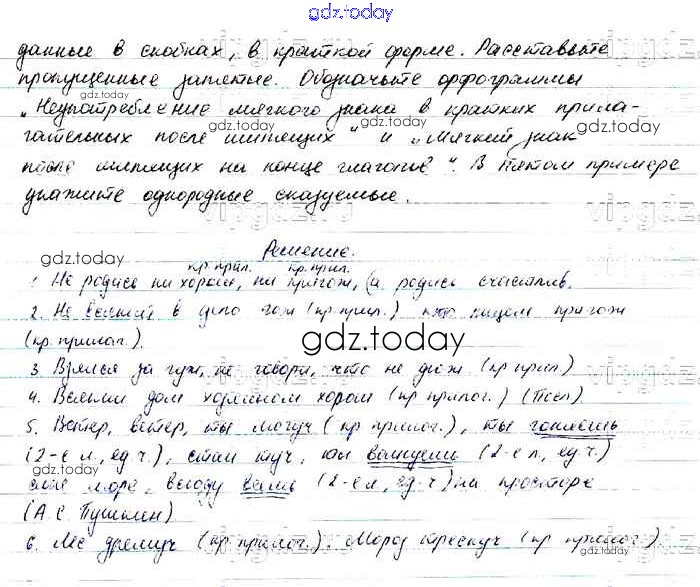 gdz.today
данные в скобках, в краткой форме. Расставьте
пропущенные запятые. Обозначьте орфограммы
„Неупотребление мягкого знака в кратких прила-
гательных после шипящих“ и „Мягкий знак
после шипящих на конце глаголов“. В пятом примере
укажите однородные сказуемые.
Решение.
кр.прил. кр.прил.
1. Не родись ни хорош, ни пригож, а родись счастлив.
2. Не всякий в дело гож (кр.прил.) кто лицом пригож
(кр.прилаг.).
3. Взялся за гуж, не говори, что не дюж (кр прил.)
4. Всякий дом хозяином хорош (кр прилаг.) (Посл)
5. Ветер, ветер, ты могуч (кр прилаг.), ты гоняешь
(2-е л, ед ч.), стаи туч, ты волнуешь (2-е л, ед ч.)
сине море, всюду веешь (2-е л, ед. ч) на просторе
(А.С. Пушкин)
6. Лес дремуч (кр прилаг.). Мороз трескуч (кр прилаг.)